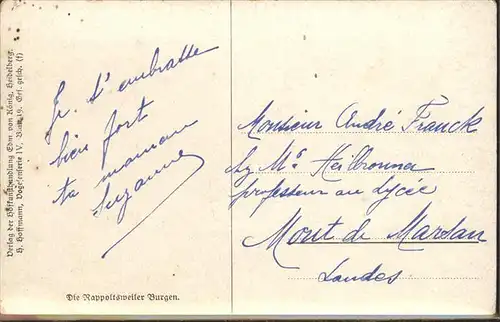 Je t'embrasse
bien fort
ta maman
Suzanne
Monsieur André Franck
chez Mr Heilbronner
professeur au Lycée
Mont de Marsan
Landes
Die Rappoltsweiler Burgen.
Verlag der Hofkunsthandlung Edm. von König, Heidelberg.
H. Hoffmann, Vogesenserie IV, Blatt 19. Ges. gesch. (1)